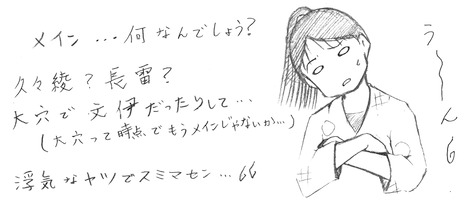 メイン…何なんでしょう?
久々綾?長雷?
大穴で文伊だったりして…
(大穴って時点でもうメインじゃないか…)
浮気なヤツでスミマセン…66
う〜〜ん6